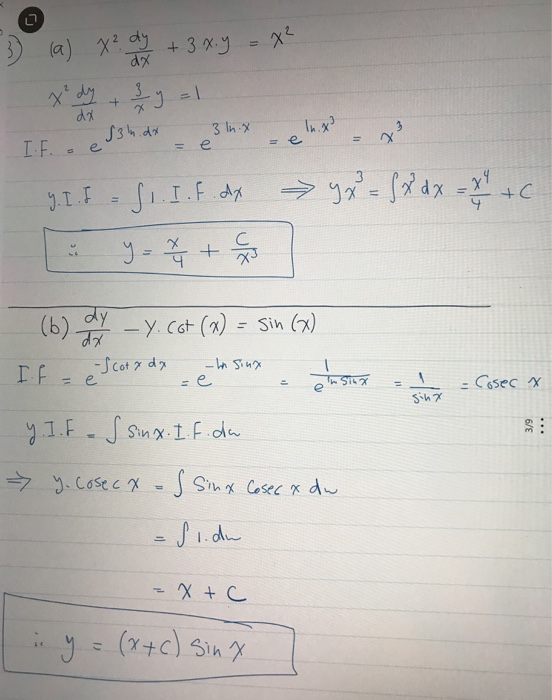 3) (a) x² · dy/dx + 3x.y = x²
x² dy/dx + 3/x y = 1
I.F. = e^∫3/x.dx = e^3 ln.x = e^ln.x³ = x³
y.I.F = ∫1.I.F.dx ⇒ yx³ = ∫x³dx = x⁴/4 + C
∴ y = x/4 + C/x³
(b) dy/dx – y.cot(x) = sin(x)
I.F = e^-∫cotxdx = e^-ln sinx = 1/e^ln sinx = 1/sinx = Cosec x
y.I.F = ∫sinx.I.F.dx
⇒ y.cosec x = ∫ Sinx Cosec x dx
= ∫1.dx
= x + C
∴ y = (x+c) Sinx
3/9